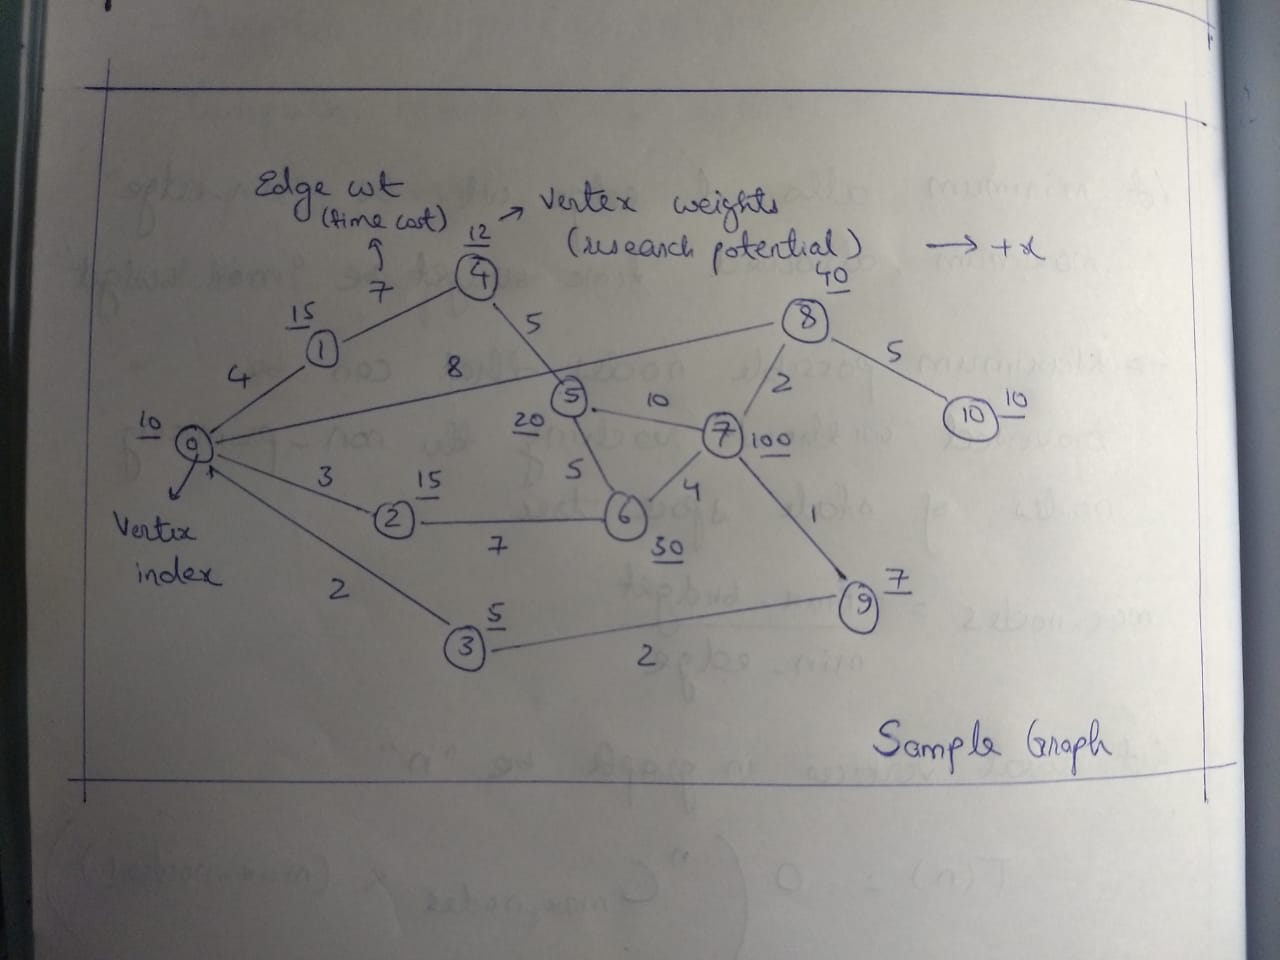 Edge wt
(time cost)
→ Vertex weights
(research potential)
→ +x
12
4
7
5
15
1
4
40
8
8
5
10
10
5
20
10
2
7
100
10
0
3
15
2
7
5
6
30
4
1
Vertex
index
2
5
3
2
9
7
Sample Graph